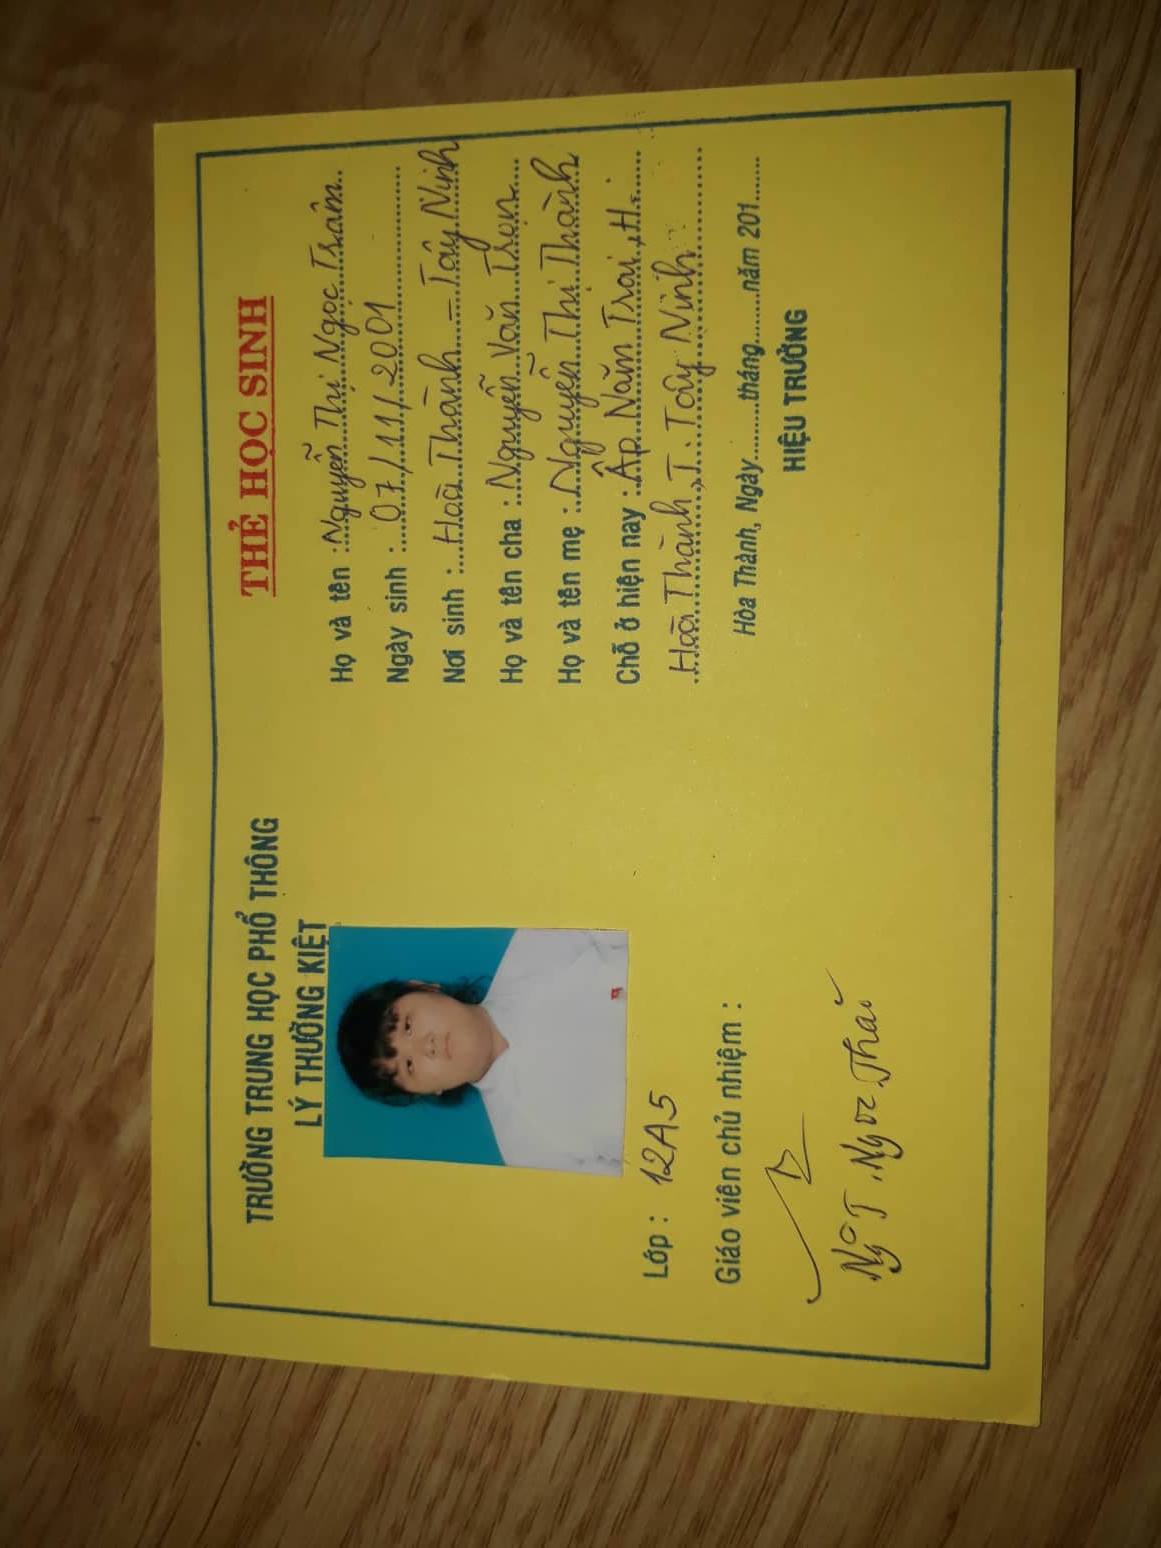 TRƯỜNG TRUNG HỌC PHỔ THÔNG
LÝ THƯỜNG KIỆT
Lớp : 12A5
Giáo viên chủ nhiệm :
Ngô T. Ngọc Thái
THẺ HỌC SINH
Họ và tên : Nguyễn Thị Ngọc Trâm
Ngày sinh : 07/11/2001
Nơi sinh : Hoà Thành - Tây Ninh
Họ và tên cha : Nguyễn Văn Trọn
Họ và tên mẹ : Nguyễn Thị Thành
Chỗ ở hiện nay : Ấp Năm Trại, H.
Hoà Thành, T. Tây Ninh
Hòa Thành, Ngày.........tháng........năm 201......
HIỆU TRƯỞNG